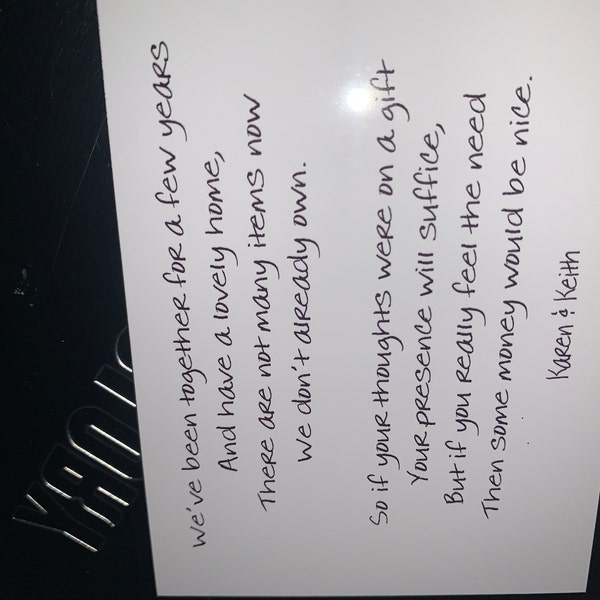 We've been together for a few years
And have a lovely home,
There are not many items now
We don't already own.
So if your thoughts were on a gift
Your presence will suffice,
But if you really feel the need
Then some money would be nice.
Karen & Keith